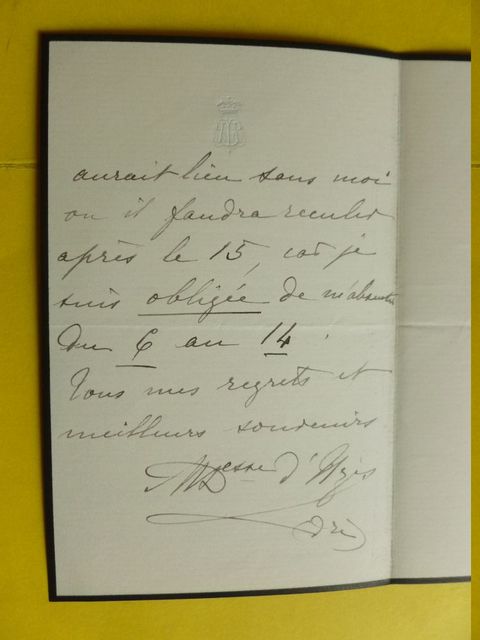 aurait lieu sans moi
ou il faudra reculer
après le 15, car je
suis obligée de m'absenter
du 6 au 14.
Tous mes regrets et
meilleurs souvenirs
Dsse d'Uzès